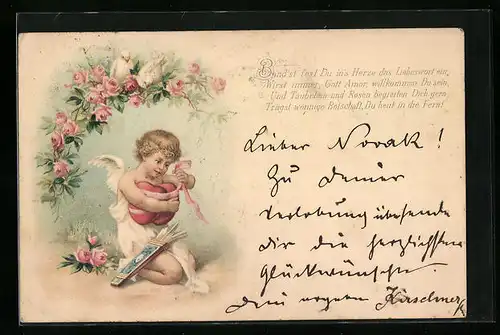 Band'st fest Du in's Herze das Liebenest ein,
Wirst immer, Gott Amor, willkommen Du sein,
Und Täubchen und Rosen begleiten Dich gern,
Trägst wonnige Botschaft, Du heut in die Fern!
Lieber Novak!
Zu Deiner
Verlobung übersende
dir die herzlichsten
Glückwünsche
Dein Kirschner